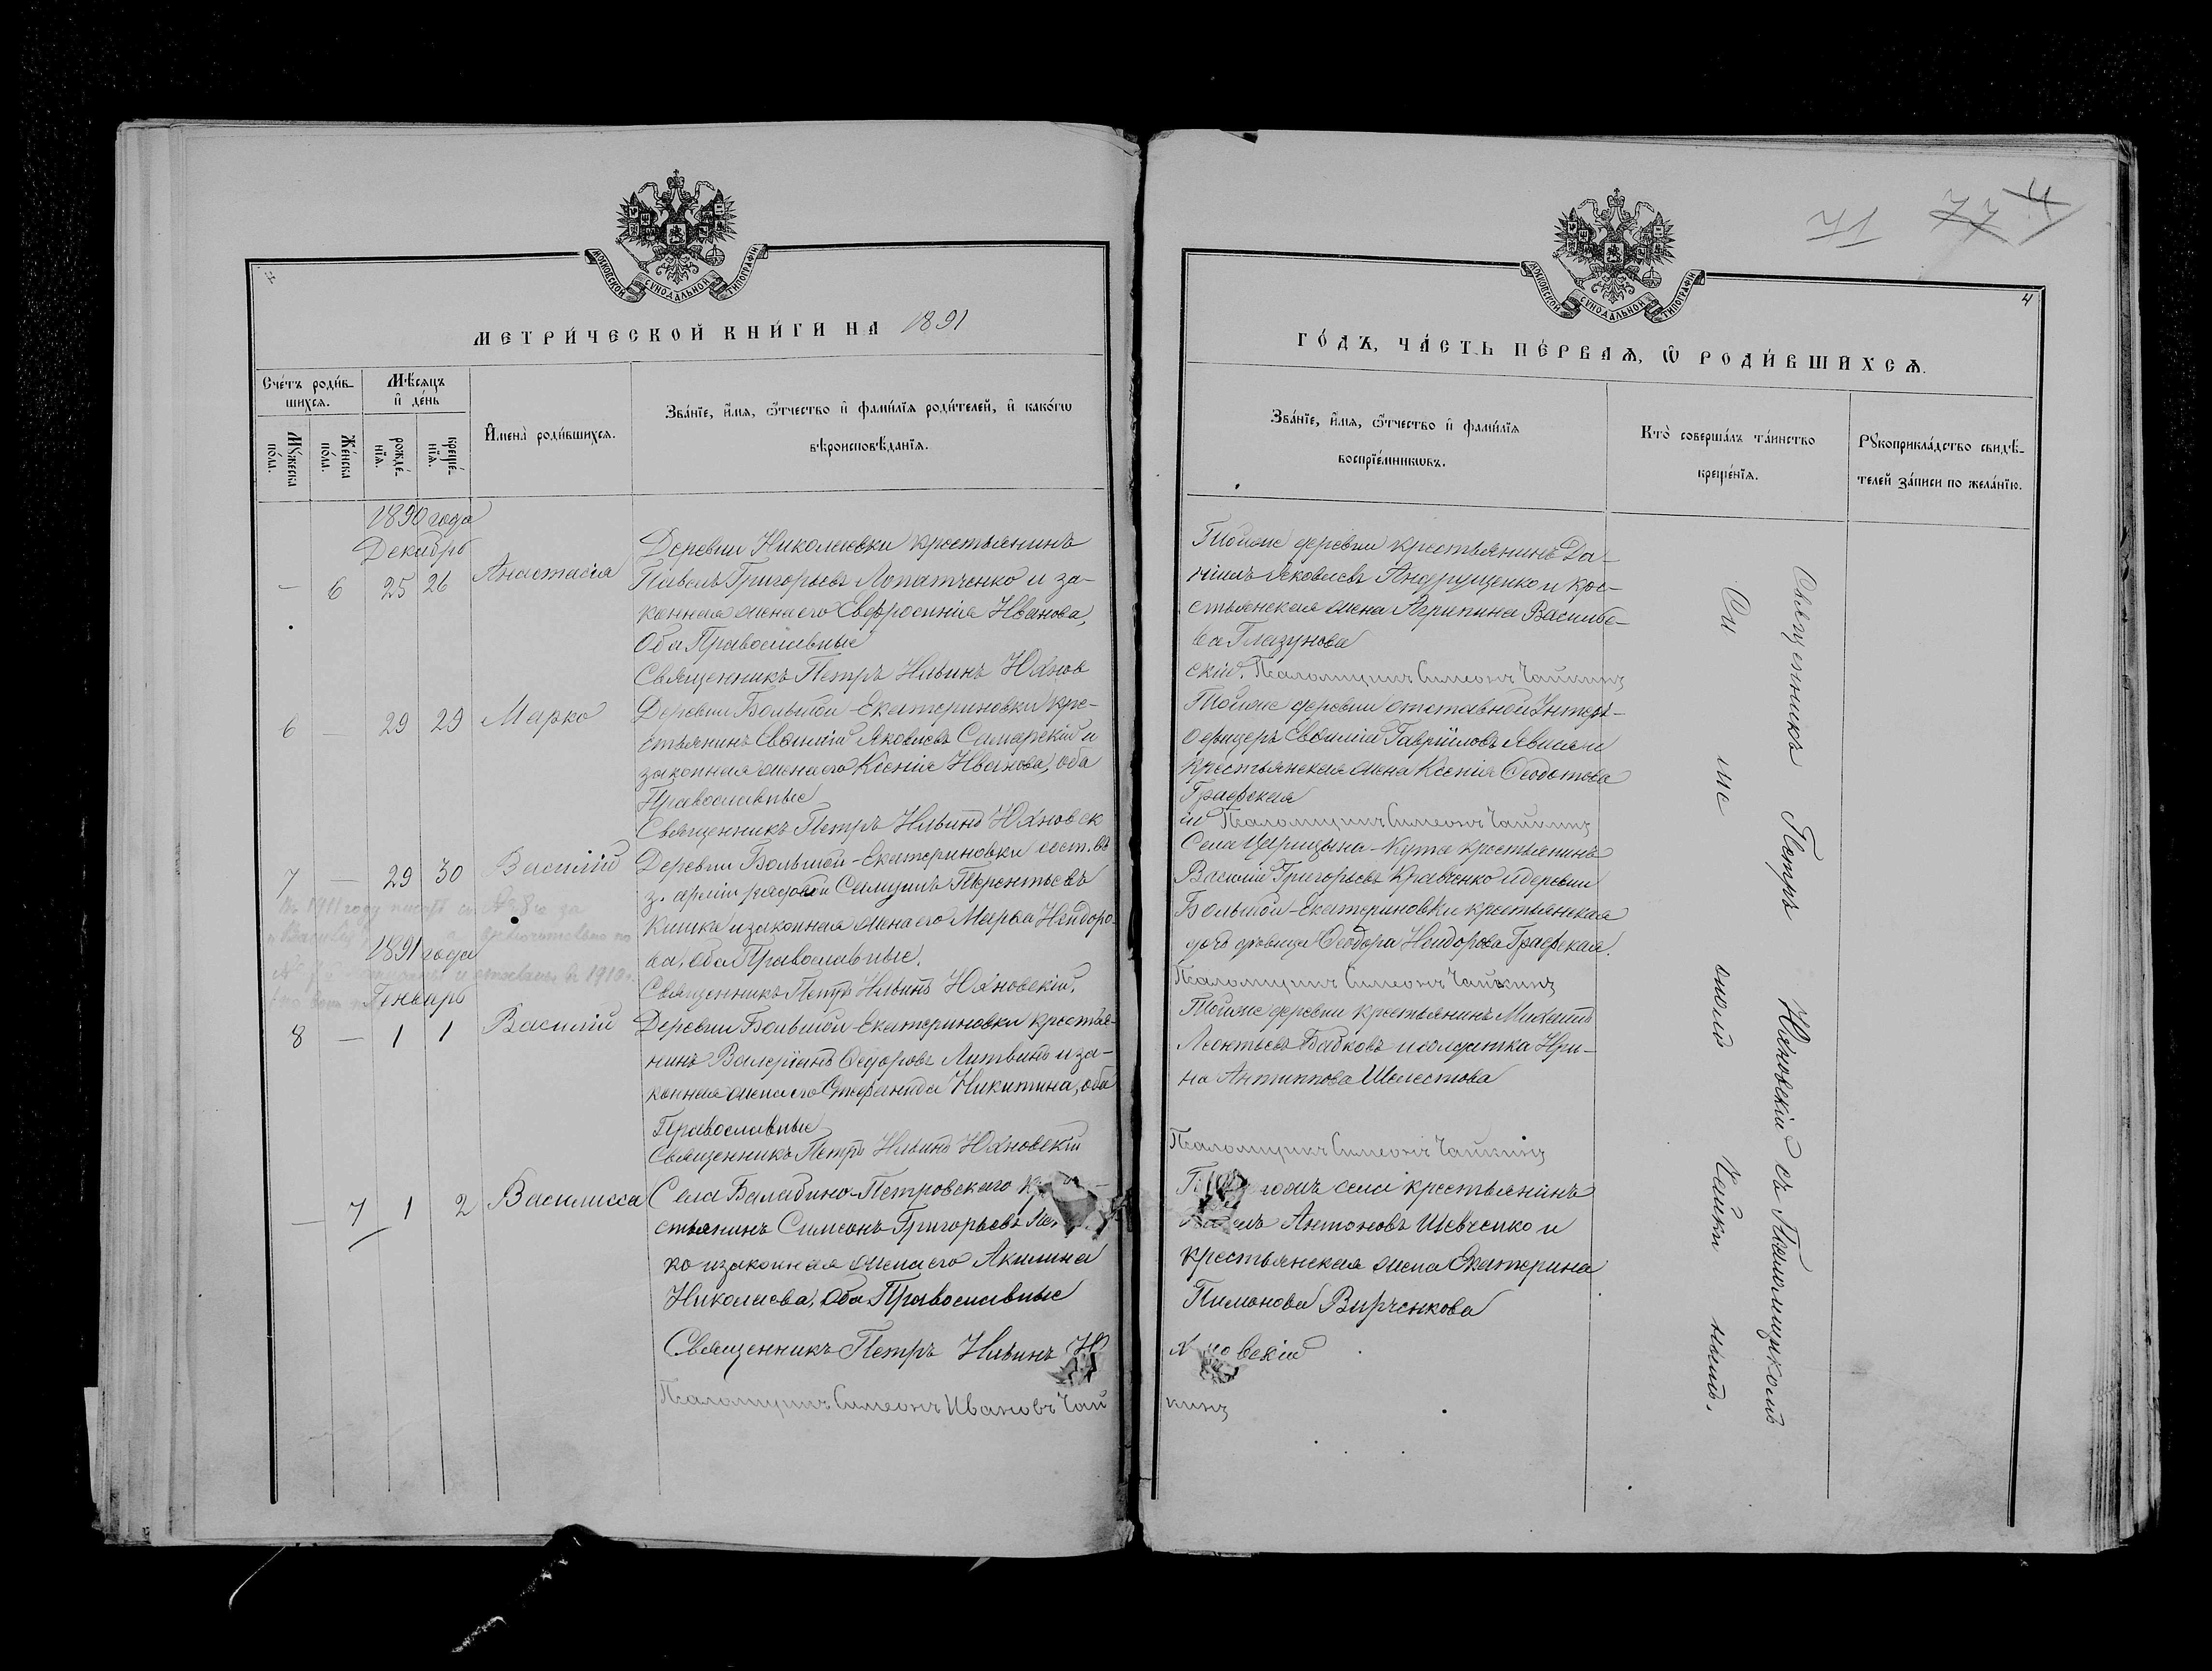 МЕТРИ́ЧЕСКОЙ КНИ́ГИ НА 1891
Сче́тъ роди́в-
шихсѧ.
Мѣ́сѧцъ
и҆ де́нь
Мꙋ́жеска
по́ла.
Же́нска
по́ла.
рожде́-
нїѧ.
креще́-
нїѧ.
И҆мена̀ роди́вшихсѧ.
Зва́нїе, и҆́мѧ, ѻ҆́тчество и҆ фами́лїѧ роди́телей, и҆ како́гѡ
вѣроисповѣ́данїѧ.
1890 года
Декабрь
— 6 25 26 Анастасія
Деревни Николаевки крестьянинъ
Павелъ Григорьевъ Лопатченко и за-
конная жена его Евфросинія Иванова,
Оба Православные
Священникъ Петръ Ильинъ Юхнов
6 — 29 29 Марко
Деревни Большой-Екатериновки кре-
стьянинъ Яковлевъ Самарскій и
законная жена его Ксенія Иванова, оба
Православные
Священникъ Петръ Ильинъ Юхновск
7 — 29 30 Василій
Деревни Большой-Екатериновки сост. въ
з. арміи рядовой Терентьевъ
Кишка и законная жена его Марѳа Исидоро-
ва, оба Православные.
Священникъ Петръ Ильинъ Юхновскій.
1891 года
Генварь
8 — 1 1 Василій
Деревни Большой-Екатериновки крестья-
нинъ Валеріанъ Ѳедоровъ Литвинъ и за-
конная жена его Стефанида Никитина, оба
Православные
Священникъ Петръ Ильинъ Юхновскій
— 7 1 2 Василисса
Села Балабино-Петровскаго
стьянинъ Симеонъ Григорьевъ
ко и законная жена его Акилина
Николаева, Оба Православные
Священникъ Петръ Ильинъ Ю
Псаломщикъ Симеонъ Ивановъ Чай
71 77 4
4
ГО́ДЪ, ЧА́СТЬ ПЕ́РВАѦ, Ѡ҆ РОДИ́ВШИХСѦ.
Зва́нїе, и҆́мѧ, ѻ҆́тчество и҆ фами́лїѧ
воспрїе́мникѡвъ.
Кто̀ соверша́лъ та́инство
креще́нїѧ.
Рꙋкоприкла́дство свидѣ́-
телей за́писи по жела́нїю.
Тойже деревни крестьянинъ Да-
ніилъ Яковлевъ Андрущенко и кре-
стьянская жена Агрипина Василье-
ва Глазунова
скій. Псаломщикъ Симеонъ Чайкинъ
Тойже деревни отставной Унтеръ-
офицеръ Гавріиловъ и
крестьянская жена Ксенія Ѳеодотова
Графская
ій Псаломщикъ Симеонъ Чайкинъ
Села Царицына-Кута крестьянинъ
Василій Григорьевъ Кравченко и деревни
Большой-Екатериновки крестьянская
дочь дѣвица Ѳеодора Исидорова Графская.
Псаломщикъ Симеонъ Чайкинъ
Тойже деревни крестьянинъ Михаилъ
Леонтьевъ Бабковъ и солдатка Ири-
на Антипова Шелестова
Псаломщикъ Симеонъ Чайкинъ
села крестьянинъ
Антоновъ Шевченко и
крестьянская жена Екатерина
Пимонова Вирченкова
хновскій
кинъ
Священникъ Петръ Юхновскій съ Псаломщикомъ
Си ме ономъ Чайки нымъ.